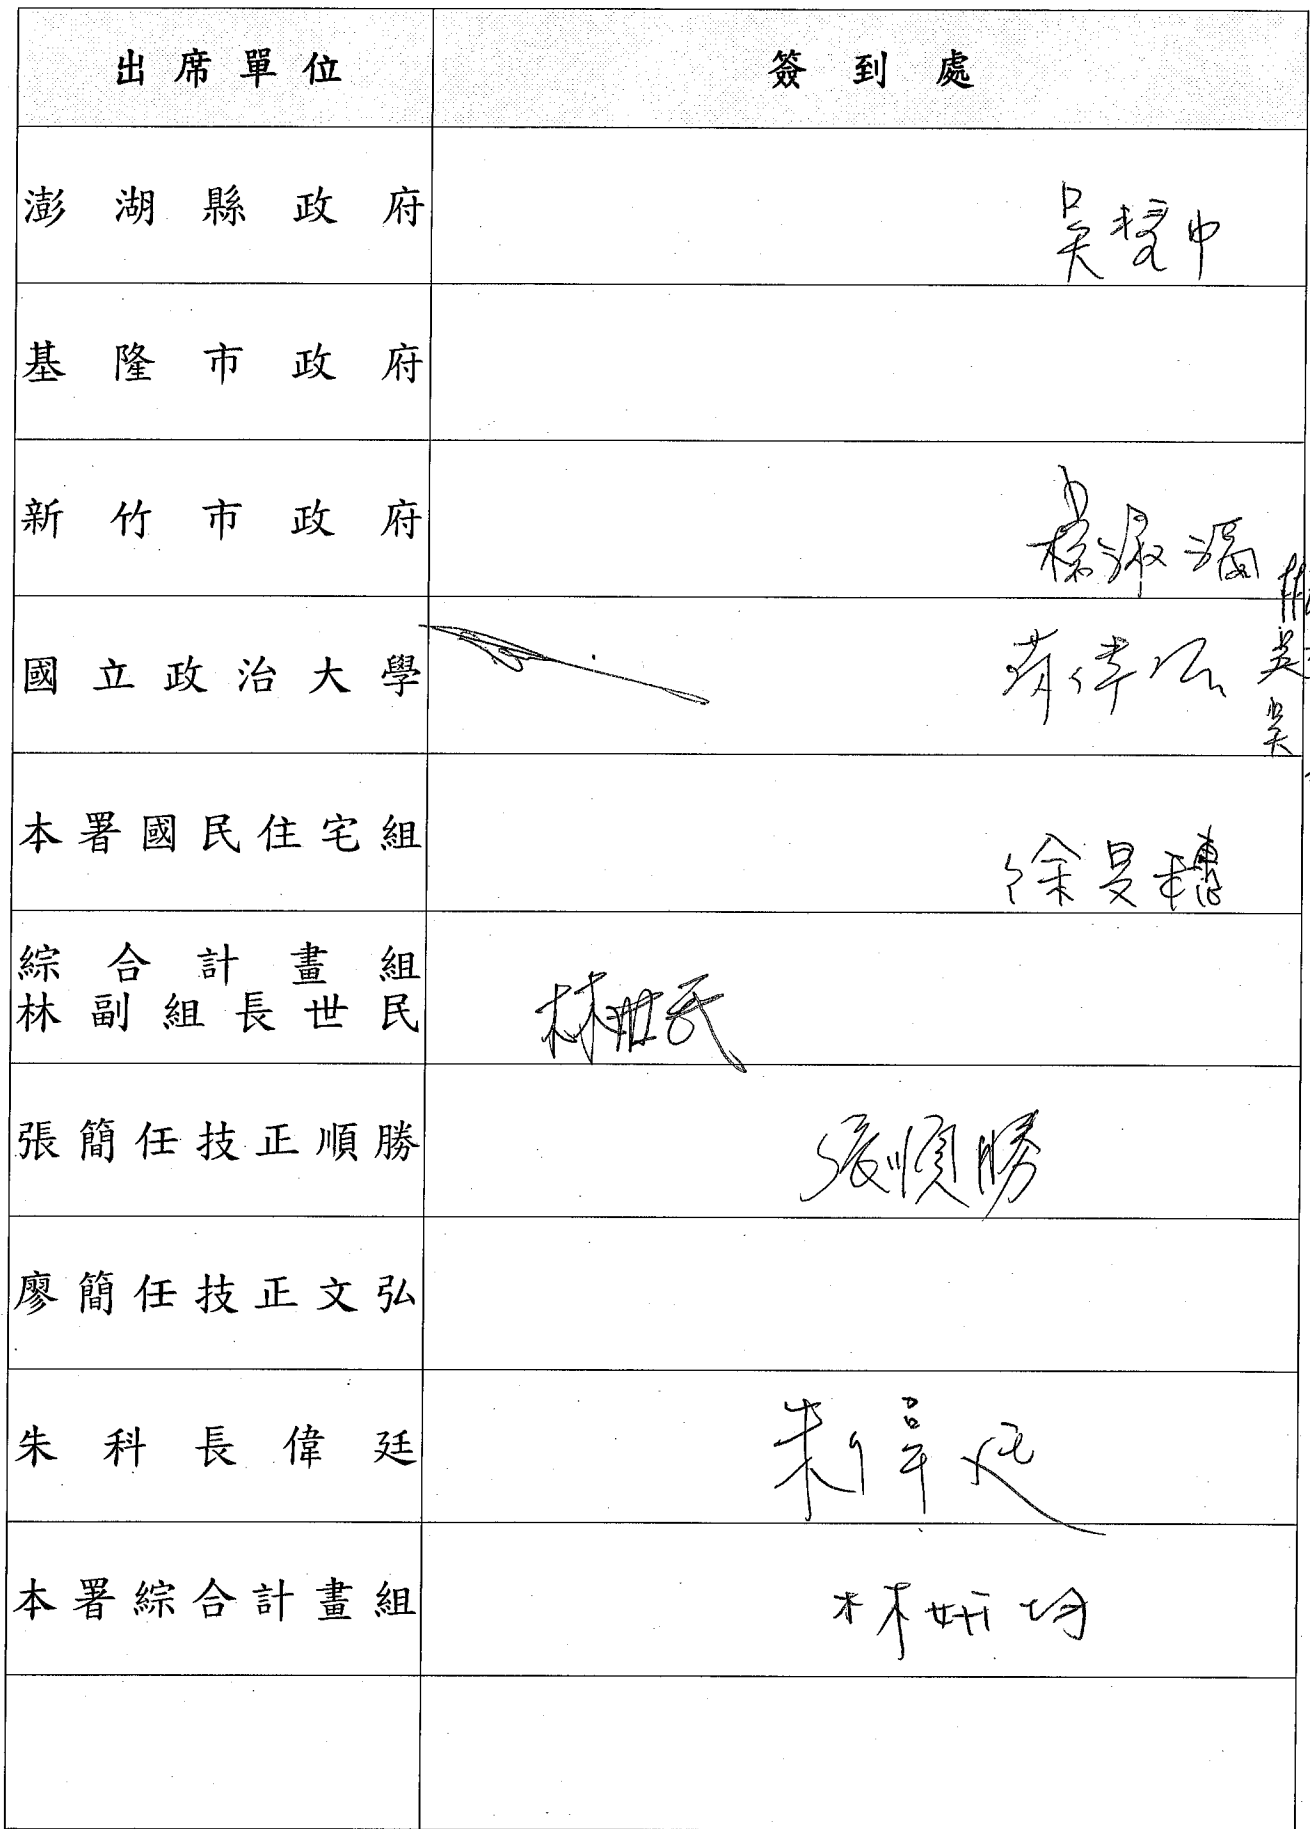 出席單位 簽到處
澎湖縣政府 吳
基隆市政府
新竹市政府
國立政治大學
本署國民住宅組 徐旻穗
綜合計畫組
林副組長世民 林世民
張簡任技正順勝 張順勝
廖簡任技正文弘
朱科長偉廷 朱偉廷
本署綜合計畫組 林妍均